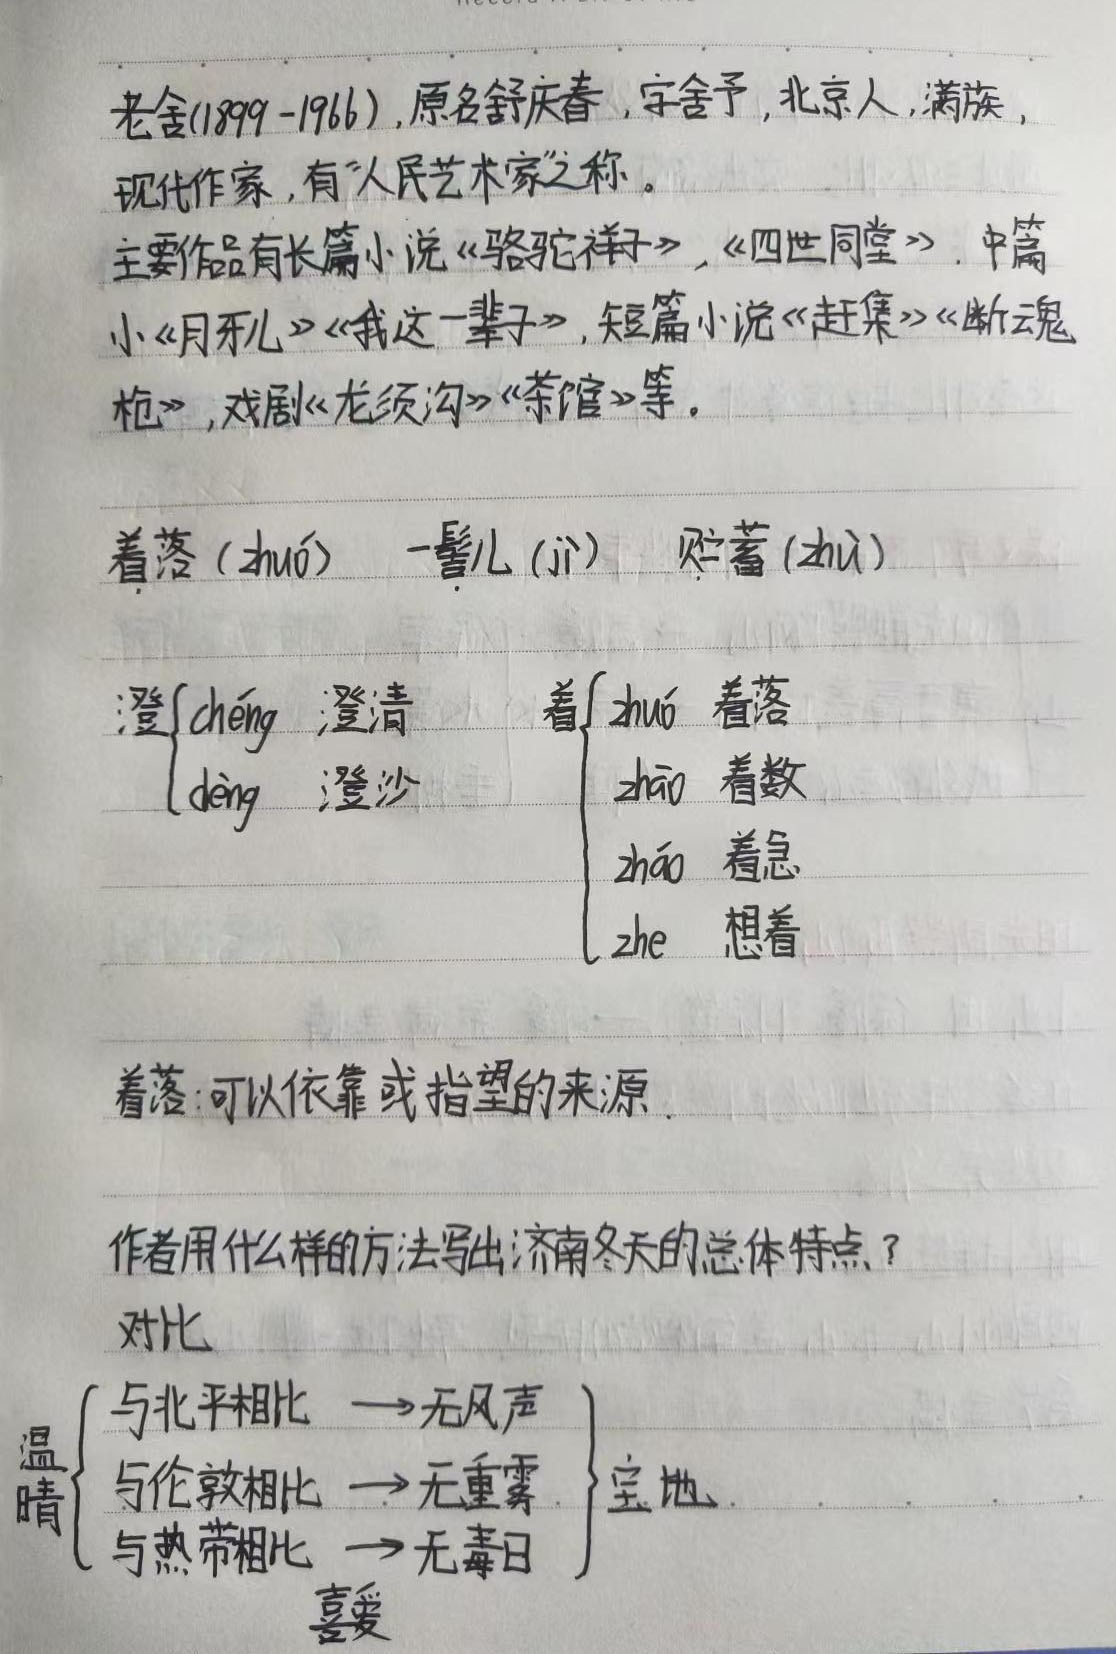 老舍(1899-1966),原名舒庆春,字舍予,北京人,满族,
现代作家,有"人民艺术家"之称。
主要作品有长篇小说《骆驼祥子》,《四世同堂》.中篇
小《月牙儿》《我这一辈子》,短篇小说《赶集》《断魂
枪》,戏剧《龙须沟》《茶馆》等。
着落(zhuó) 一髻儿(jì) 贮蓄(zhù)
澄 chéng 澄清 着 zhuó 着落
dèng 澄沙 zhāo 着数
zháo 着急
zhe 想着
着落:可以依靠或指望的来源.
作者用什么样的方法写出济南冬天的总体特点?
对比
与北平相比 →无风声
温晴 与伦敦相比 →无重雾 宝地.
与热带相比 →无毒日
喜爱